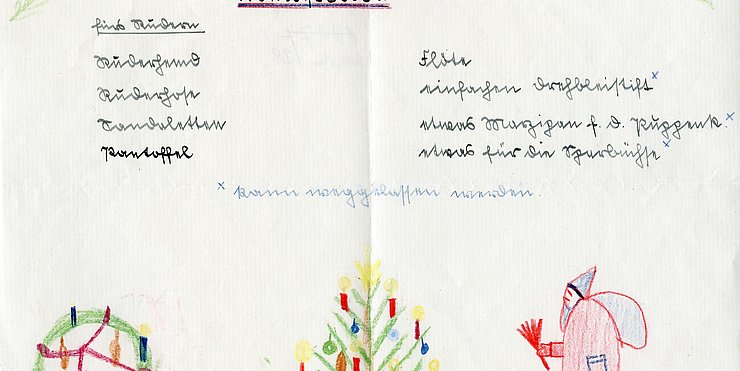 fürs Rudern
Ruderhemd
Ruderhose
Sandaletten
Pantoffel
Flöte
einfachen Drehbleistift x
etwas Marzipan f. d. Puppenk. x
etwas für die Sparbüchse x
x kann weggelassen werden.